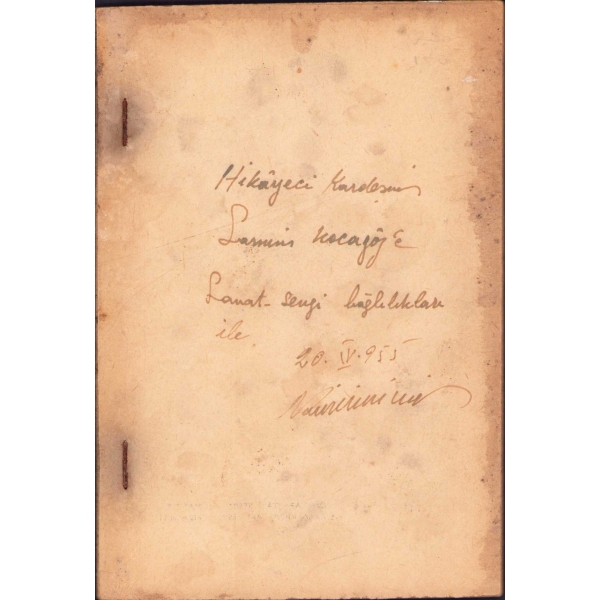 Hikâyeci Kardeşim
Samim Kocagöz'e
Sanat-sevgi bağlılıkları
ile.
20. IV. 955